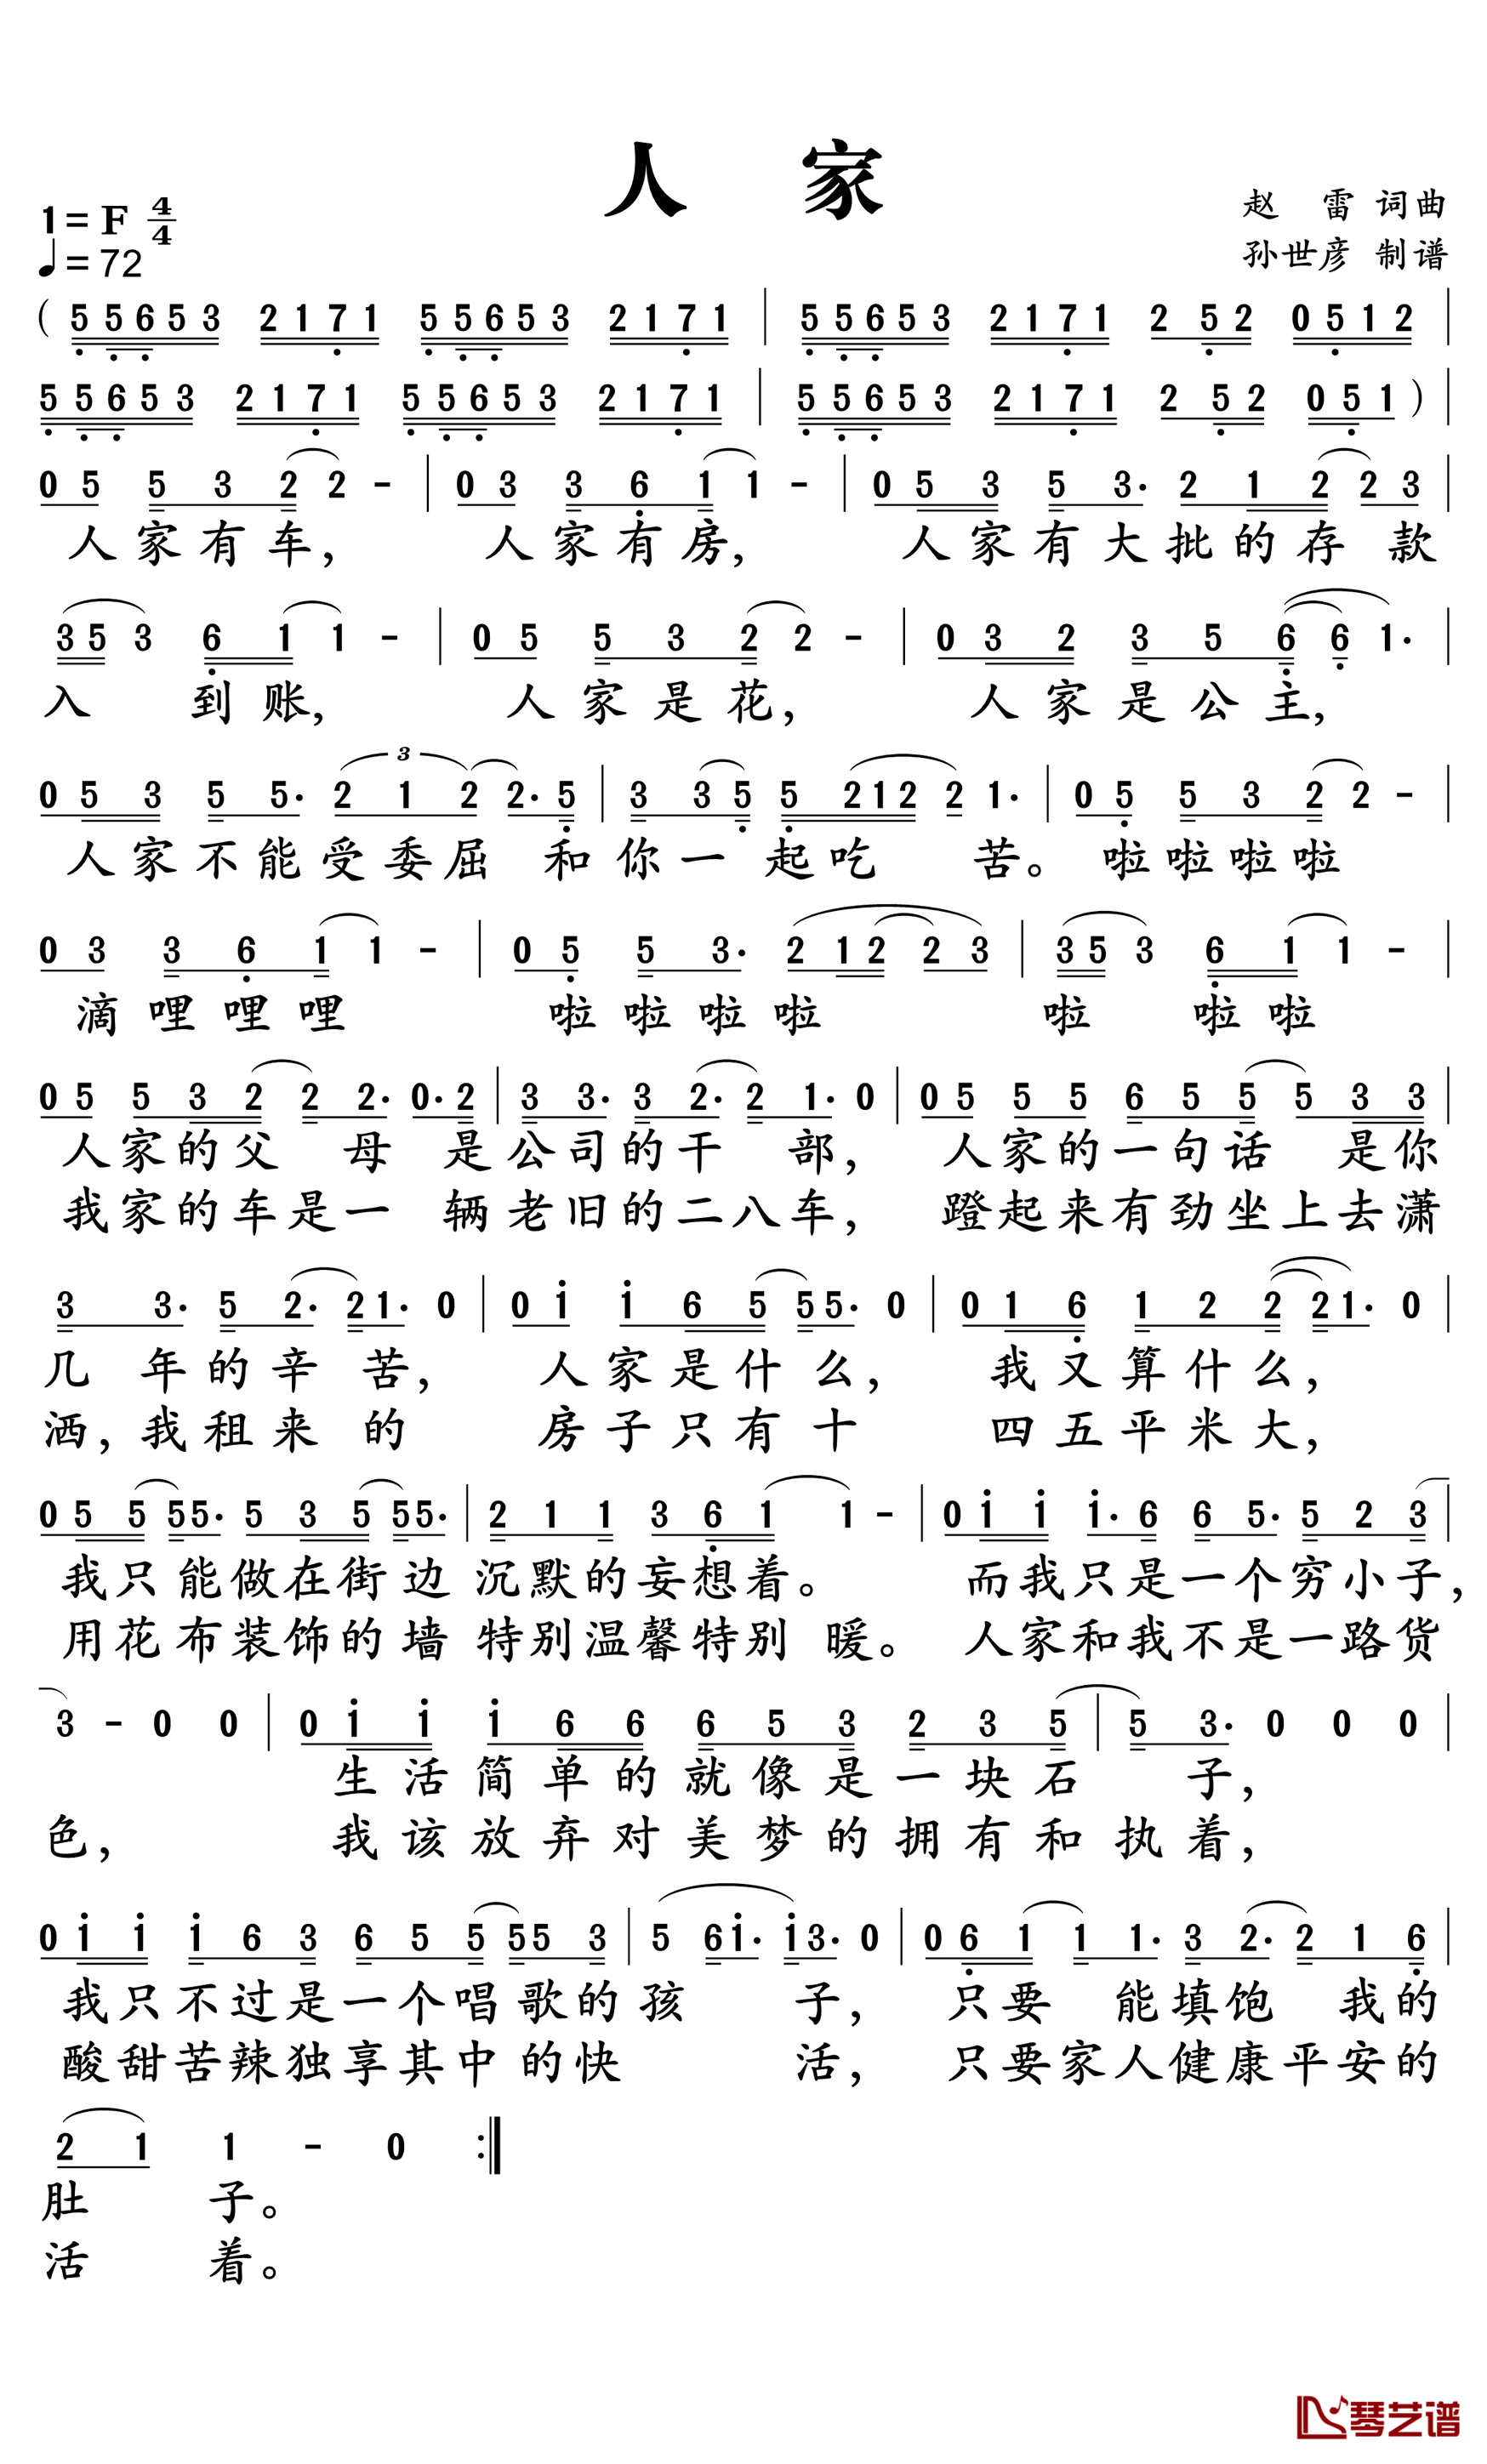 人 家
1=F 4/4
♩=72
赵 雷 词曲
孙世彦 制谱
( 5 5 6 5 3 2 1 7 1 5 5 6 5 3 2 1 7 1 | 5 5 6 5 3 2 1 7 1 2 5 2 0 5 1 2 |
5 5 6 5 3 2 1 7 1 5 5 6 5 3 2 1 7 1 | 5 5 6 5 3 2 1 7 1 2 5 2 0 5 1 ) |
0 5 5 3 2 2 - | 0 3 3 6 1 1 - | 0 5 3 5 3· 2 1 2 2 3 |
人家有车, 人家有房, 人家有大批的存 款
3 5 3 6 1 1 - | 0 5 5 3 2 2 - | 0 3 2 3 5 6 6 1· |
入 到账, 人家是花, 人家是公主,
3
0 5 3 5 5· 2 1 2 2· 5 | 3 3 5 5 2 1 2 2 1· | 0 5 5 3 2 2 - |
人家不能受委屈 和你一 起吃 苦。 啦啦啦啦
0 3 3 6 1 1 - | 0 5 5 3· 2 1 2 2 3 | 3 5 3 6 1 1 - |
滴哩哩哩 啦啦啦啦 啦 啦啦
0 5 5 3 2 2 2· 0· 2 | 3 3· 3 2· 2 1· 0 | 0 5 5 5 6 5 5 5 3 3 |
人家的父 母 是公司的干 部, 人家的一句话 是你
我家的车是一 辆老旧的二八车, 蹬起来有劲坐上去潇
3 3· 5 2· 2 1· 0 | 0 1 1 6 5 5 5· 0 | 0 1 6 1 2 2 2 1· 0 |
几 年的辛 苦, 人家是什么, 我又算什么,
洒,我租来 的 房子只有十 四五平米大,
0 5 5 5 5· 5 3 5 5 5· | 2 1 1 3 6 1 1 - | 0 1 1 1· 6 6 5· 5 2 3 |
我只能做在街边 沉默的妄想着。 而我只是一个穷小子,
用花布装饰的墙 特别温馨特别 暖。 人家和我不是一路货
3 - 0 0 | 0 1 1 1 6 6 6 5 3 2 3 5 | 5 3· 0 0 0 |
生活简单的就像是一块石 子,
色, 我该放弃对美梦的拥有和执着,
0 1 1 1 6 3 6 5 5 5 5 3 | 5 6 1· 1 3· 0 | 0 6 1 1 1· 3 2· 2 1 6 |
我只不过是一个唱歌的孩 子, 只要 能填饱 我的
酸甜苦辣独享其中的快 活, 只要家人健康平安的
2 1 1 - 0 :|
肚 子。
活 着。
琴艺谱